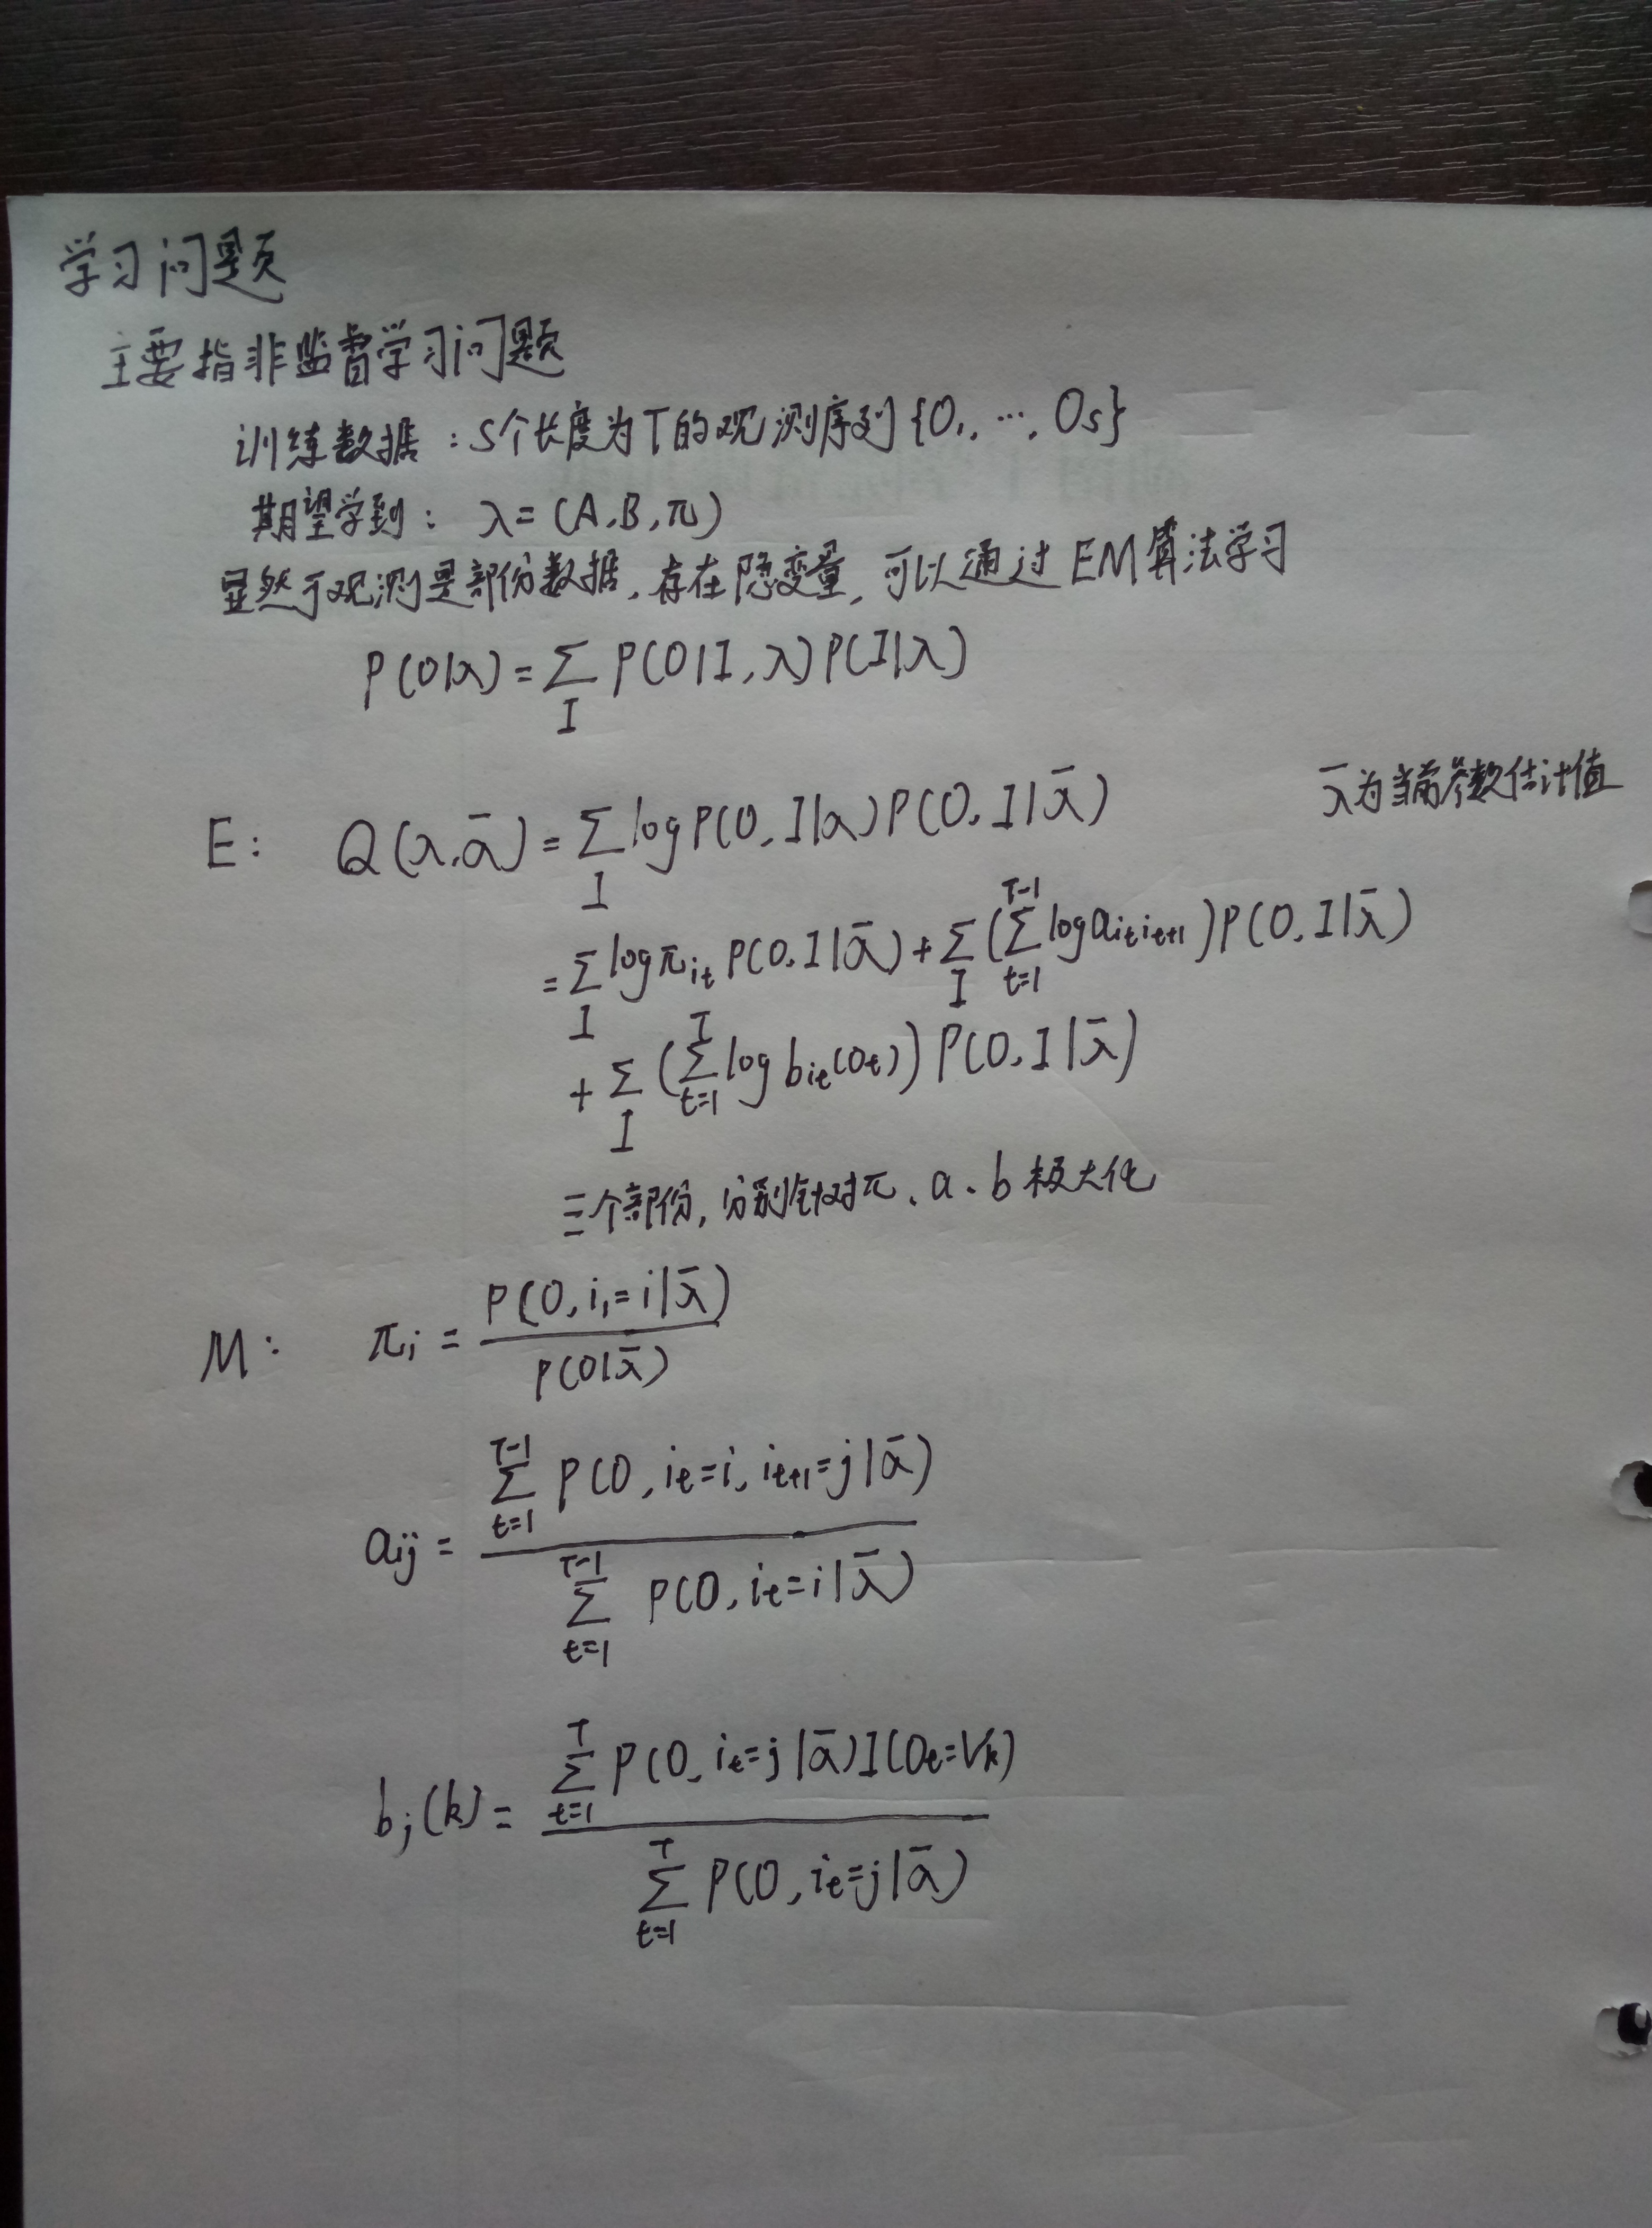 学习问题
主要指非监督学习问题
训练数据：S个长度为T的观测序列{O₁, …, Oₛ}
期望学到： λ=(A,B,π)
显然可观测是部份数据，存在隐变量，可以通过EM算法学习
P(O|λ) = ∑_I P(O|I,λ)P(I|λ)
λ̄为当前参数估计值
E: Q(λ,λ̄) = ∑_I log P(O,I|λ)P(O,I|λ̄)
= ∑_I log π_{i_t} P(O,I|λ̄) + ∑_I (∑_{t=1}^{T-1} log a_{i_t i_{t+1}})P(O,I|λ̄)
+ ∑_I (∑_{t=1}^{T} log b_{i_t}(o_t))P(O,I|λ̄)
三个部份，分别针对π、a、b极大化
M: π_i = P(O,i₁=i|λ̄) / P(O|λ̄)
a_{ij} = ∑_{t=1}^{T-1} P(O,i_t=i,i_{t+1}=j|λ̄) / ∑_{t=1}^{T-1} P(O,i_t=i|λ̄)
b_j(k) = ∑_{t=1}^{T} P(O,i_t=j|λ̄)I(O_t=V_k) / ∑_{t=1}^{T} P(O,i_t=j|λ̄)